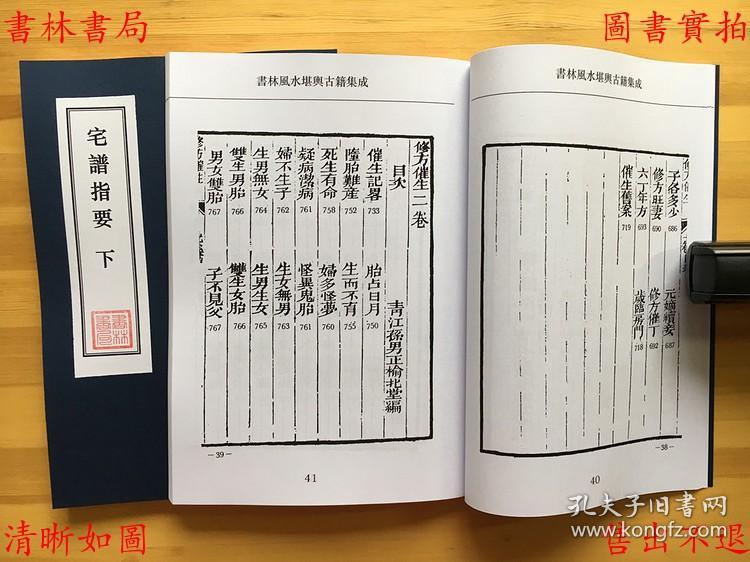 書林書局
圖書實拍
宅譜指要 下
書林風水堪輿古籍集成
修方催生二卷
目次
青江孫男正榆北堂編
催生記畧 733
胎占日月 750
墮胎難産 752
生而不育 755
死生有命 758
婦多怪夢 760
疑病潔病 761
怪異鬼胎 761
婦不生子 762
生女無男 763
生男無女 764
生男生女 765
雙生男胎 766
雙生女胎 766
男女雙胎 767
子不見父 767
—39—
41
書林風水堪輿古籍集成
子各多少 686
元嫡續妾 687
修方旺妻 690
修方催丁 692
六丁年方 693
歲臨房門 718
催生舊案 719
—38—
40
孔夫子旧書网
www.kongfz.com
清晰如圖
售出不退